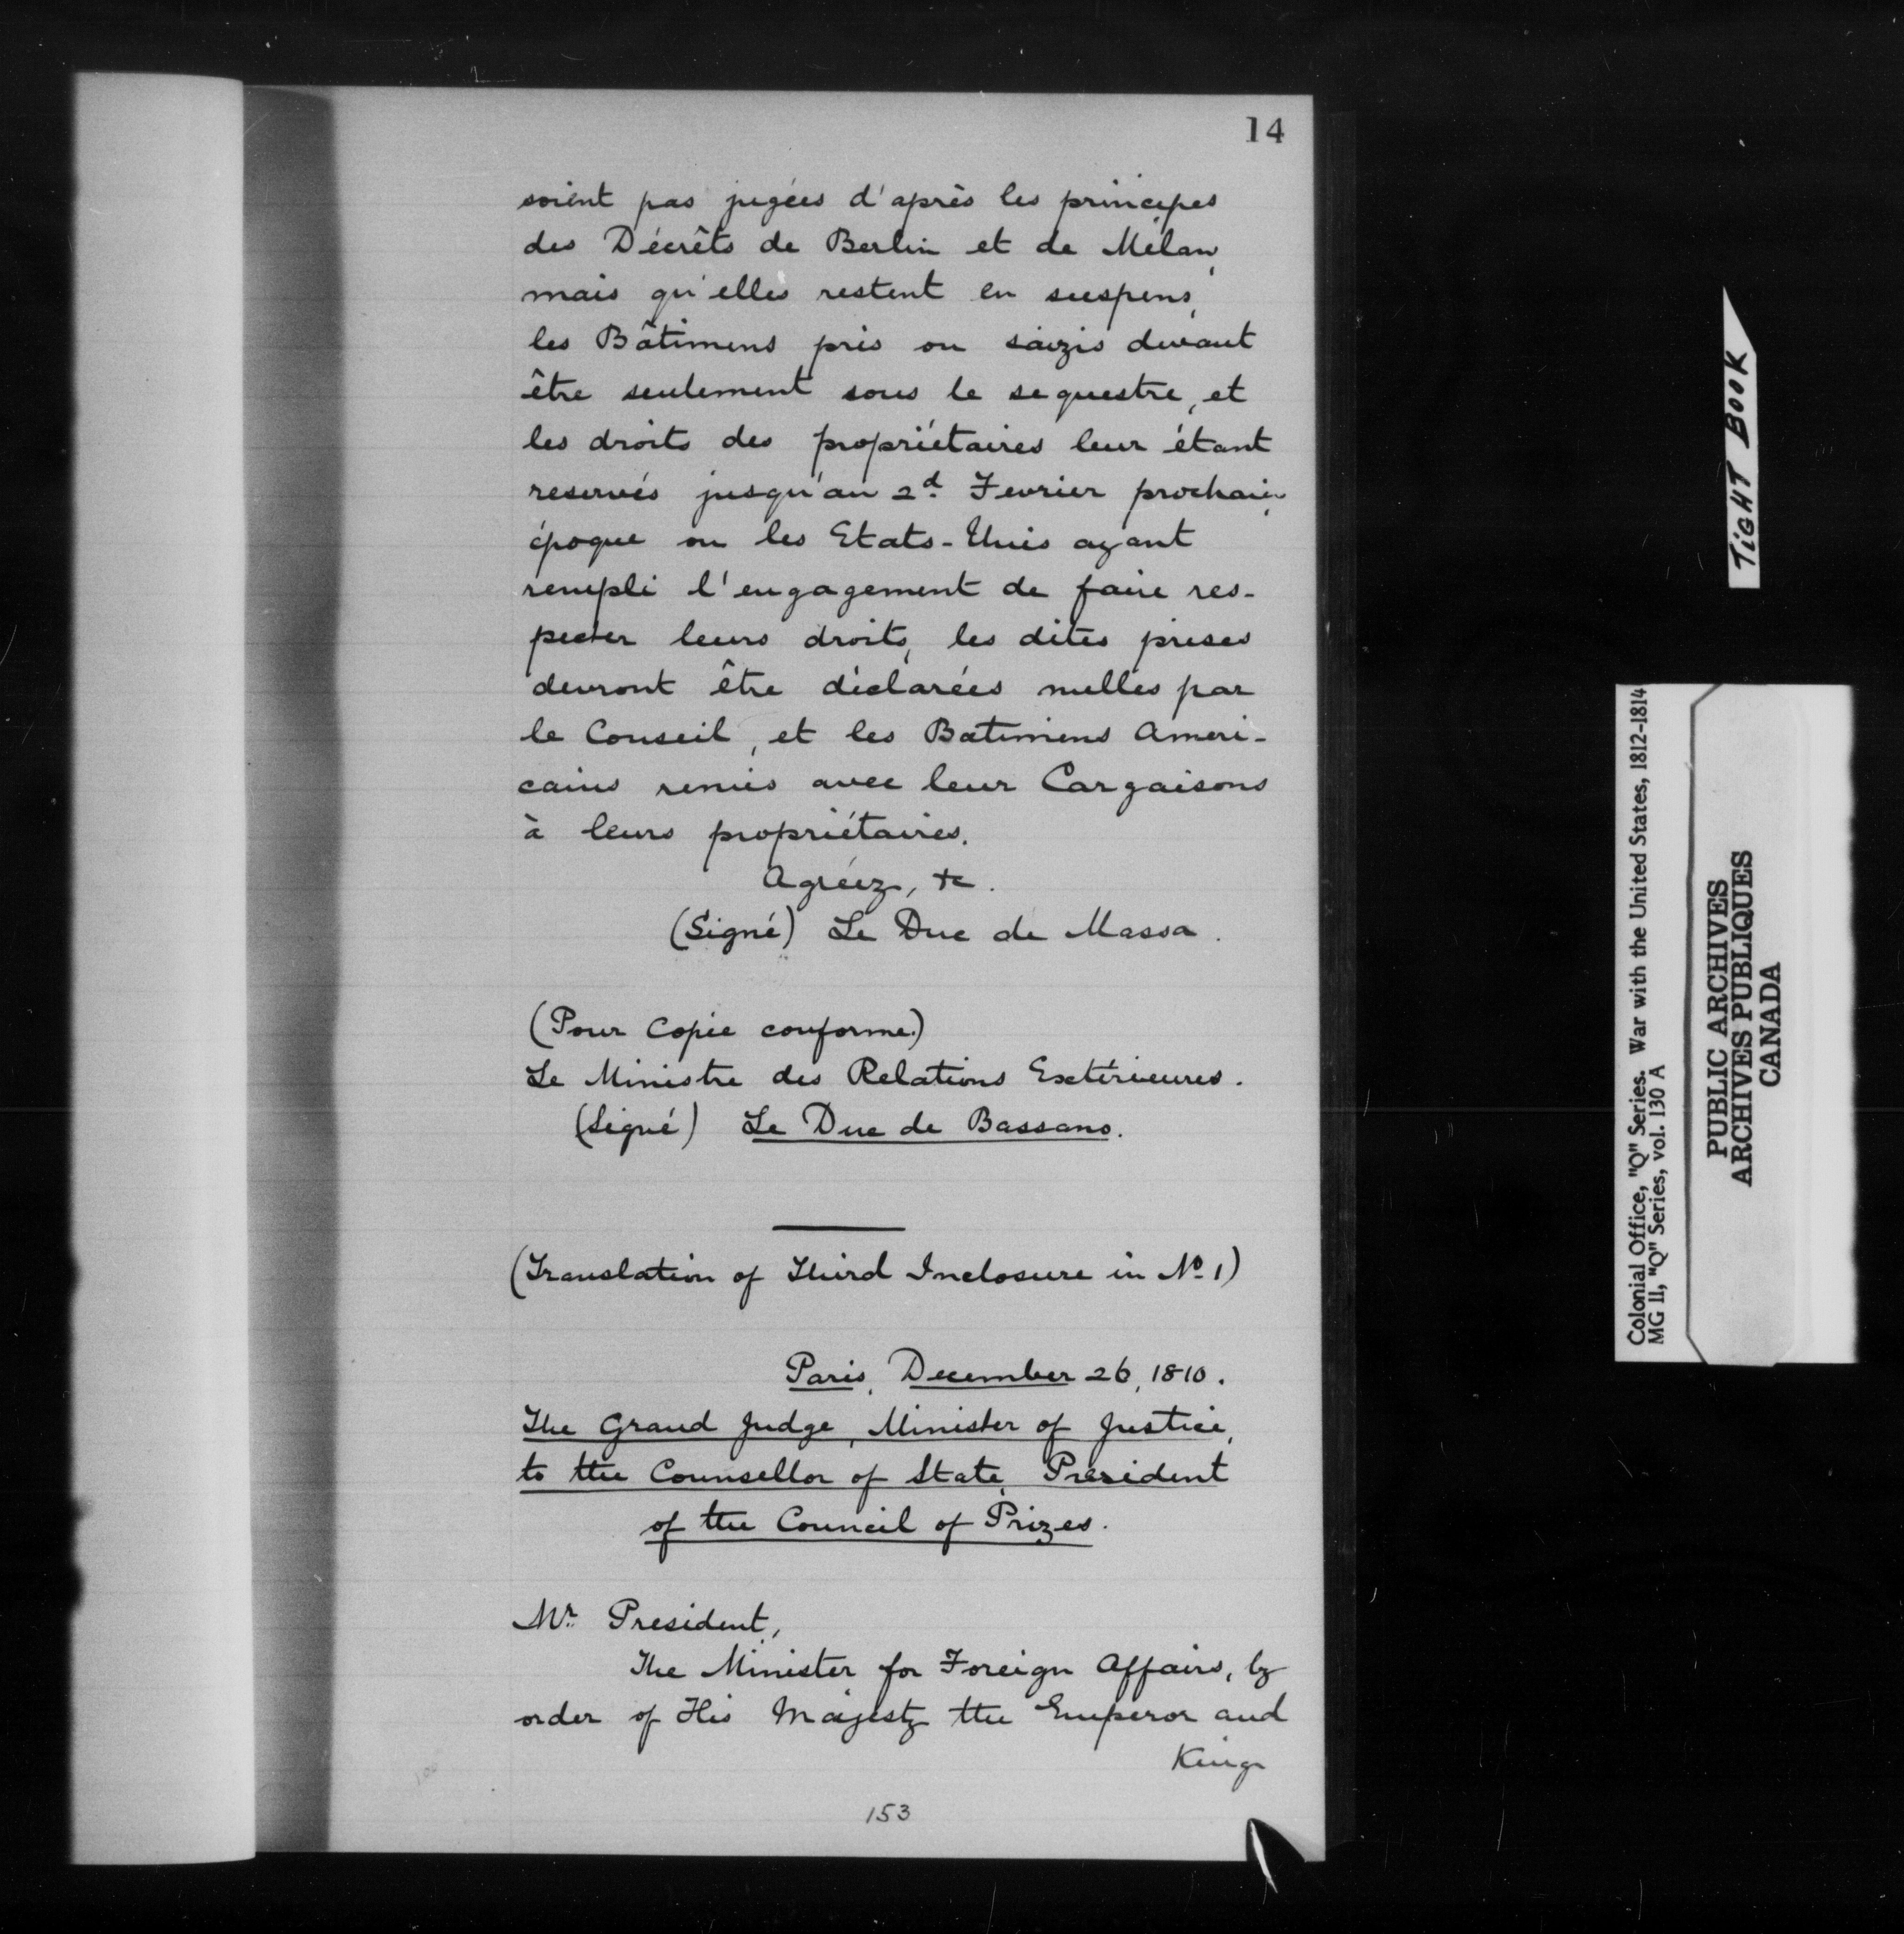 14
soient pas jugées d'après les principes
des Décrêts de Berlin et de Milan,
mais qu'elles restent en suspens,
les Bâtimens pris ou saizis devant
être seulement sous le sequestre, et
les droits des propriétaires leur étant
reservés jusqu'au 2d. Fevrier prochain,
époque ou les Etats-Unis ayant
rempli l'engagement de faire res-
pecter leurs droits, les dites prises
devront être déclarées nulles par
le Conseil, et les Batimens Ameri-
cains remis avec leur Cargaisons
à leurs propriétaires.
Agréez, &c.
(Signé) Le Duc de Massa.
(Pour Copie conforme.)
Le Ministre des Relations Extérieures.
(Signé) Le Duc de Bassano.
(Translation of Third Inclosure in No. 1)
Paris, December 26, 1810.
The Grand Judge, Minister of Justice,
to the Counsellor of State, President
of the Council of Prizes.
Mr. President,
The Minister for Foreign Affairs, by
order of His Majesty the Emperor and
King
153
TIGHT BOOK
Colonial Office, "Q" Series. War with the United States, 1812-1814
MG 11, "Q" Series, vol. 130 A
PUBLIC ARCHIVES
ARCHIVES PUBLIQUES
CANADA